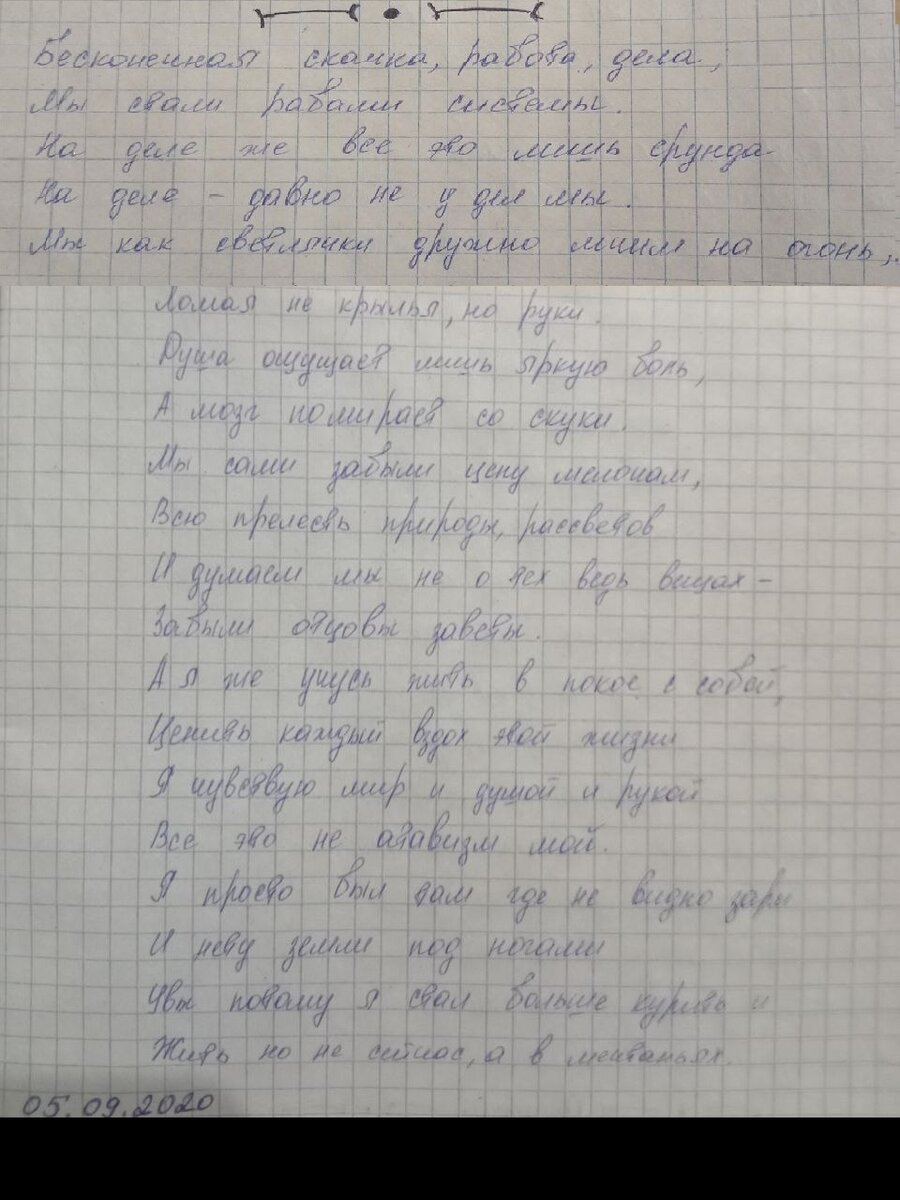 Бесконечная скачка, работа, дела,
Мы стали рабами системы.
На деле же все это лишь ерунда
На деле – давно не у дел мы.
Мы как светлячки дружно мчим на огонь,
Ломая не крылья, но руки.
Душа ощущает лишь яркую боль,
А мозг помирает со скуки.
Мы сами забыли цену мелочам,
Всю прелесть природы, рассветов
И думаем мы не о тех ведь вещах –
Забыли отцовы заветы.
А я же учусь жить в покое с собой,
Ценить каждый вздох этой жизни
Я чувствую мир и душой и рукой
Все это не атавизм мой.
Я просто был там где не видно зари
И нету земли под ногами
Увы потому я стал больше курить и
Жить но не сейчас, а в мечтаньях.
05.09.2020